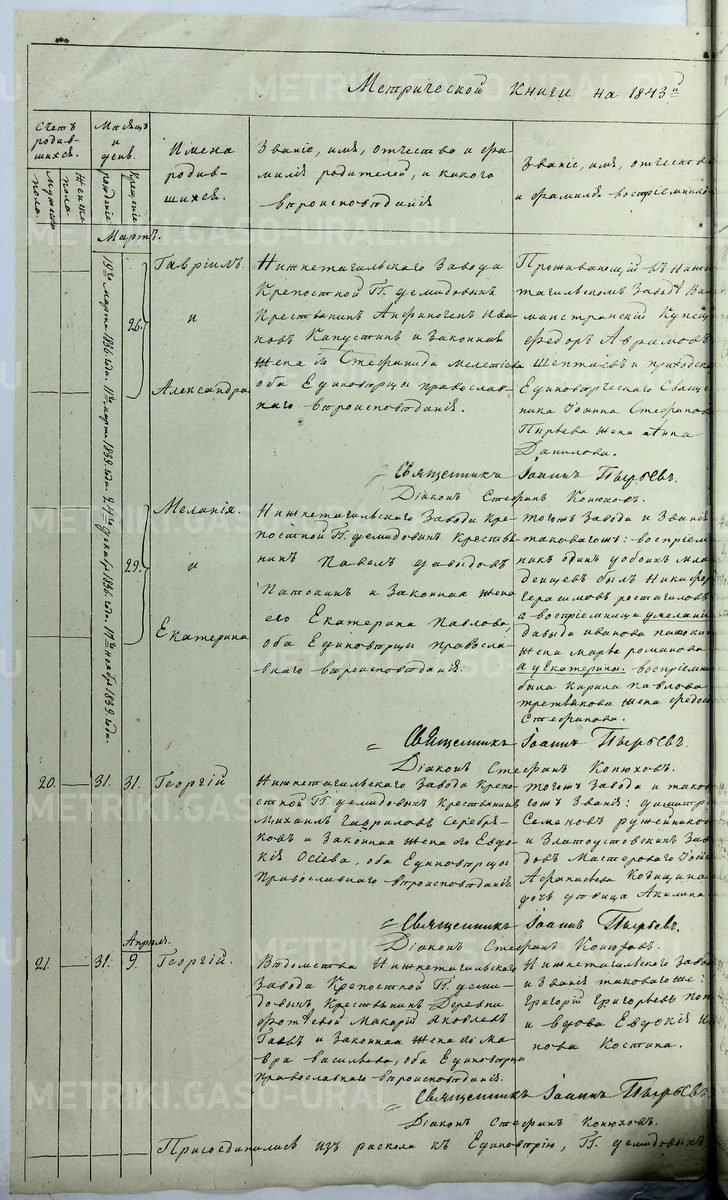 Метрической книги на 1843й
Счетъ родив-шихся.
Мужеска пола.
Женска пола.
Мѣсяцъ и день.
рожденіе
Крещеніе
Имена родив-шихся.
Званіе, имя, отчество и фа-
милія родителей, и какого
вѣроисповѣданія
Званіе, имя, отчество
и фамилія воспріемников
Мартъ.
19го марта 1836 года. 11го марта 1839 года. 24го декабря 1836 года. 17го ноября 1839 года.
26.
Гавріилъ.
и
Александра
Нижнетагильскаго Завода
Крепостной Гг. демидовыхъ
Крестьянинъ Анфиногенъ Ива-
новъ Капустинъ и Законная
жена его Стефанида Мелетіева
оба Единовѣрцы православ-
наго вѣроисповѣданія.
Проживающій въ Нижне
тагильскомъ Заводѣ
Купецъ
Федоръ Аврамовъ
и приходска
Единовѣрческаго Свяще
ника Іоанна Стефанова
Пырьева жена Анна
Данилова.
Священникъ Іоаннъ Пырьевъ.
Діаконъ Стефанъ Конюховъ.
29.
Меланія
и
Екатерина
Нижнетагильскаго Завода Кре-
постной Гг. демидовыхъ Крестья-
нинъ Павелъ давыдовъ
Патокинъ и Законная жена
его Екатерина Павлова
оба Единовѣрцы правосла-
внаго вѣроисповѣданія.
тогожъ Завода и Званія
таковагожъ: воспріем-
никъ одинъ у обоихъ мла-
денцевъ былъ Никифоръ
герасимовъ
а воспріемницы у меланіи
давыда иванова патокина
жена марья романова
а у Екатерины. воспріемница
была Кирила Павлова
третьякова жена федосья
Стефанова.
Священникъ Іоаннъ Пырьевъ.
Діаконъ Стефанъ Конюховъ.
20. — 31. 31. Георгій
Нижнетагильскаго Завода Крепо-
стной Гг. демидовыхъ Крестьянинъ
Михаилъ Гавриловъ Серебря-
ковъ и Законная жена его Евдо-
кія Осіева, оба Единовѣрцы
Православнаго вѣроисповѣданія
тогожъ Завода и тако
гожъ Званія: димитрій
Семеновъ ружейников
и Златоустовскихъ Заво
довъ Мастероваго
Афанасьева
дочь дѣвица Акилина
Священникъ Іоаннъ Пырьевъ.
Діаконъ Стефанъ Конюховъ.
Апрѣль.
21. — 31. 9. Георгій.
Вѣдомства Нижнетагильскаго
Завода Крепостной Гг. деми-
довыхъ Крестьянинъ Деревни
Макарій Яковлевъ
и Законная жена его Ма-
вра васильева, оба Единовѣрцы
Православнаго вѣроисповѣданія.
Нижнетагильскаго Заво
и Званія таковагоже:
Григорій Григорьевъ
и вдова Евдокія
нова Костина.
Священникъ Іоаннъ Пырьевъ
Діаконъ Стефанъ Конюховъ.
Присоединились изъ раскола къ Единовѣрію, Гг. демидовыхъ
METRIKI.GASO-URAL.RU